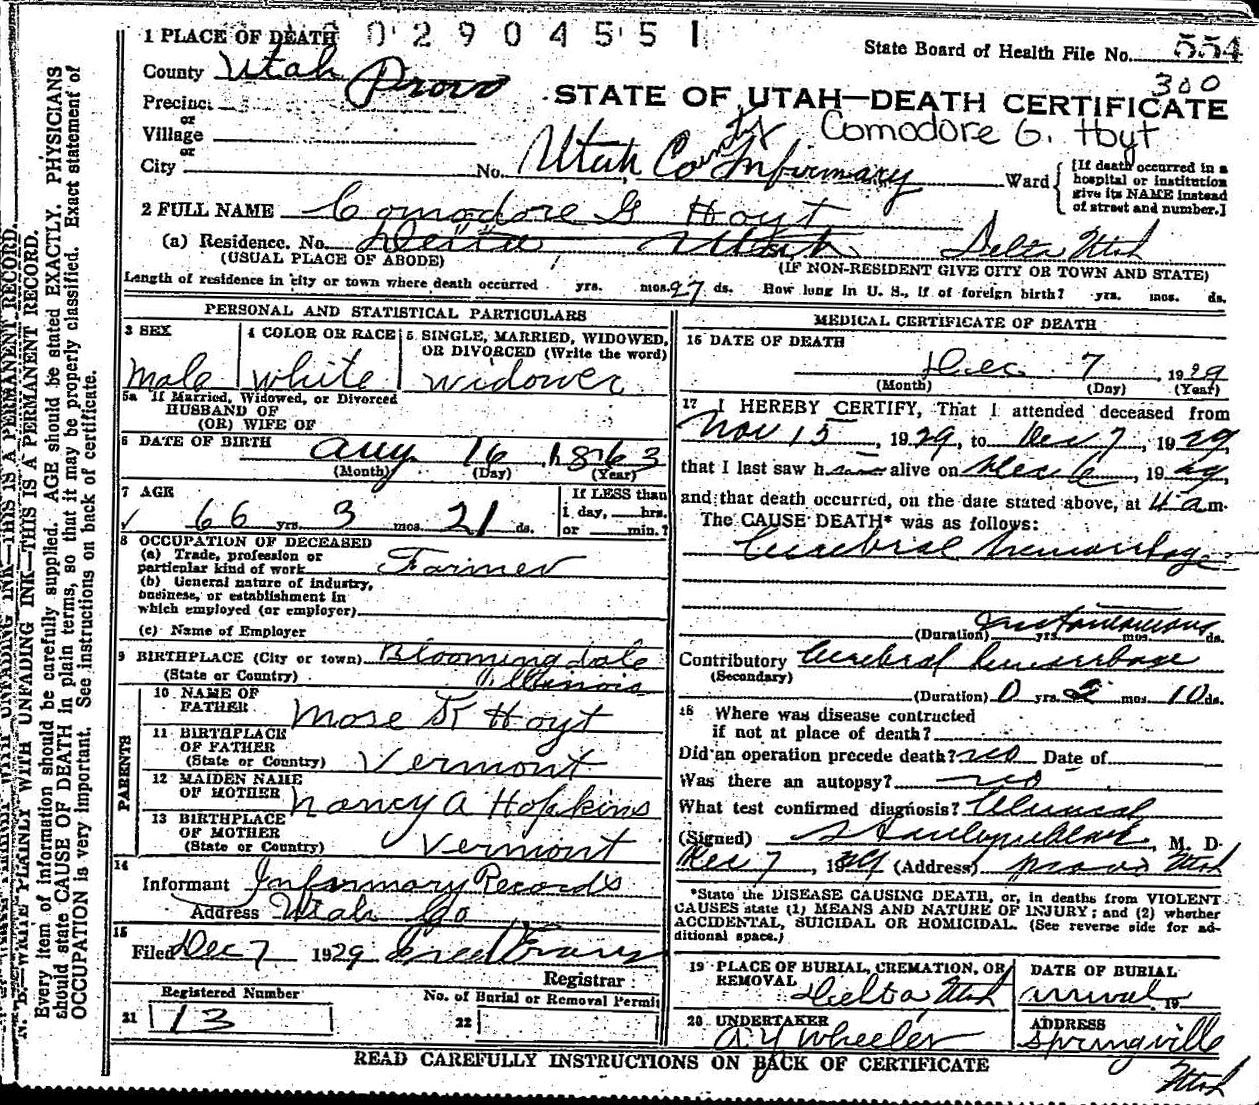 N. B.—WRITE PLAINLY WITH UNFADING INK—THIS IS A PERMANENT RECORD.
Every item of information should be carefully supplied. AGE should be stated EXACTLY. PHYSICIANS
should state CAUSE OF DEATH in plain terms, so that it may be properly classified. Exact statement of
OCCUPATION is very important. See instructions on back of certificate.
1 PLACE OF DEATH 02904551
State Board of Health File No. 554
County Utah Provo
300
Precinct
or
STATE OF UTAH—DEATH CERTIFICATE
Village
or
Comodore G. Hoyt
City
No. Utah County Infirmary Ward
[If death occurred in a
hospital or institution
give its NAME instead
of street and number.]
2 FULL NAME Comodore G Hoyt
(a) Residence. No. Delta Utah Delta Utah
(USUAL PLACE OF ABODE)
(IF NON-RESIDENT GIVE CITY OR TOWN AND STATE)
Length of residence in city or town where death occurred yrs. mos. 27 ds. How long in U. S., if of foreign birth? yrs. mos. ds.
PERSONAL AND STATISTICAL PARTICULARS
3 SEX
Male
4 COLOR OR RACE
White
5 SINGLE, MARRIED, WIDOWED,
OR DIVORCED (Write the word)
Widower
5a If Married, Widowed, or Divorced
HUSBAND OF
(OR) WIFE OF
6 DATE OF BIRTH Aug 16, 1863
(Month) (Day) (Year)
7 AGE
66 yrs. 3 mos. 21 ds.
If LESS than
1 day, hrs.
or min.?
8 OCCUPATION OF DECEASED
(a) Trade, profession or
particular kind of work Farmer
(b) General nature of industry,
business, or establishment in
which employed (or employer)
(c) Name of Employer
9 BIRTHPLACE (City or town) Bloomingdale
(State or Country) Illinois
PARENTS
10 NAME OF
FATHER Mose K Hoyt
11 BIRTHPLACE
OF FATHER
(State or Country) Vermont
12 MAIDEN NAME
OF MOTHER Nancy A Hopkins
13 BIRTHPLACE
OF MOTHER
(State or Country) Vermont
14
Informant Infirmary Records
Address Utah Co
15
Filed Dec 7 1929 Fred Evans
Registrar
Registered Number
21 13
No. of Burial or Removal Permit
22
MEDICAL CERTIFICATE OF DEATH
16 DATE OF DEATH
Dec 7, 1929
(Month) (Day) (Year)
17 I HEREBY CERTIFY, That I attended deceased from
Nov 15, 1929, to Dec 7, 1929,
that I last saw him alive on Dec 6, 1929,
and that death occurred, on the date stated above, at 4 a m.
The CAUSE DEATH* was as follows:
Cerebral hemorrhage
(Duration) yrs. mos. ds. Instantaneous
Contributory Cerebral hemorrhage
(Secondary)
(Duration) 0 yrs. 2 mos. 10 ds.
18 Where was disease contracted
if not at place of death?
Did an operation precede death? no Date of
Was there an autopsy? no
What test confirmed diagnosis? Clinical
(Signed) M. D.
Dec 7, 1929 (Address) Provo Utah
*State the DISEASE CAUSING DEATH, or, in deaths from VIOLENT
CAUSES state (1) MEANS AND NATURE OF INJURY; and (2) whether
ACCIDENTAL, SUICIDAL OR HOMICIDAL. (See reverse side for ad-
ditional space.)
19 PLACE OF BURIAL, CREMATION, OR
REMOVAL Delta Utah
DATE OF BURIAL
19
20 UNDERTAKER
A Y Wheeler
ADDRESS
Springville
Utah
READ CAREFULLY INSTRUCTIONS ON BACK OF CERTIFICATE